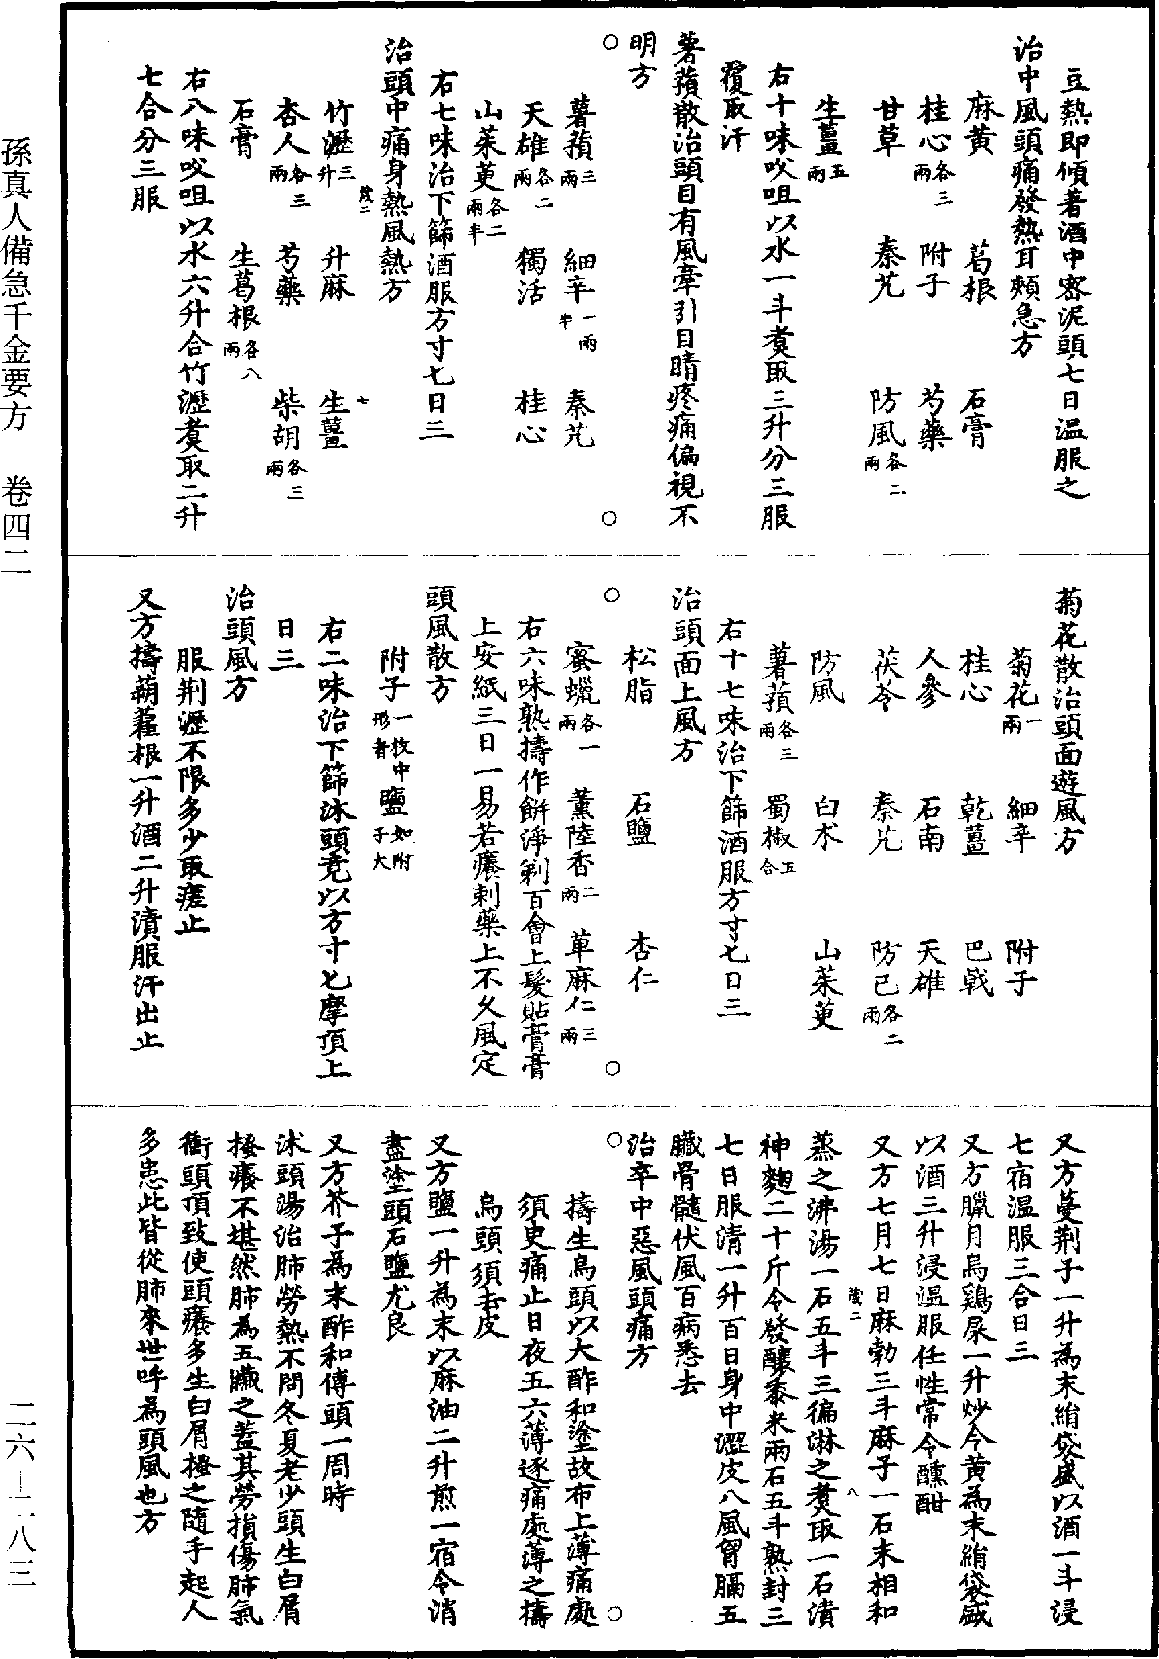 孫真人備急千金要方　卷四二
二六—一八三
豆熱即傾著酒中密泥頭七日温服之
治中風頭痛發熱耳頰急方
麻黄　葛根　石膏
桂心各三兩　附子　芍藥
甘草　秦艽　防風各二兩
生薑五兩
右十味㕮咀以水一斗煑取三升分三服
覆取汗
薯蕷散治頭目有風牽引目睛疼痛偏視不
明方
薯蕷三兩　細辛一兩半　秦艽
天雄各二兩　獨活　桂心
山茱萸各二兩半
右七味治下篩酒服方寸匕日三
治頭中痛身熱風熱方
竹瀝三升　升麻　生薑
杏人各三兩　芍藥　柴胡各三兩
石膏　生葛根各八兩
右八味㕮咀以水六升合竹瀝煑取二升
七合分三服
菊花散治頭面遊風方
菊花一兩　細辛　附子
桂心　乾薑　巴戟
人參　石南　天雄
茯苓　秦艽　防己各二兩
防風　白朮　山茱萸
薯蕷各三兩　蜀椒五合
右十七味治下篩酒服方寸匕日三
治頭面上風方
松脂　石鹽　杏仁
蜜蠟各一兩　薰陸香二兩　萆麻仁三兩
右六味熟擣作餅淨剃百會上髮貼膏膏
上安紙三日一易若癢刺藥上不久風定
頭風散方
附子一枚中形者　鹽如附子大
右二味治下篩沐頭竟以方寸匕摩頂上
日三
治頭風方
服荆瀝不限多少取瘥止
又方擣蒴藋根一升酒二升漬服汗出止
又方蔓荆子一升為末絹袋盛以酒一斗浸
七宿温服三合日三
又方臘月烏鷄屎一升炒令黄為末絹袋盛
以酒三升浸温服任性常令醺酣
又方七月七日麻勃三斗麻子一石末相和
蒸之沸湯一石五斗三徧淋之煑取一石漬
神麴二十斤令發釀黍米兩石五斗熟封三
七日服清一升百日身中澀皮八風胷膈五
臟骨髓伏風百病悉去
治卒中惡風頭痛方
擣生烏頭以大酢和塗故布上薄痛處
須臾痛止日夜五六薄逐痛處薄之擣
烏頭須去皮
又方鹽一升為末以麻油二升煎一宿令消
盡塗頭石鹽尤良
又方芥子為末酢和傅頭一周時
沐頭湯治肺勞熱不問冬夏老少頭生白屑
搔癢不堪然肺為五臟之蓋其勞損傷肺氣
衝頭頂致使頭癢多生白屑搔之隨手起人
多患此皆從肺來世呼為頭風也方